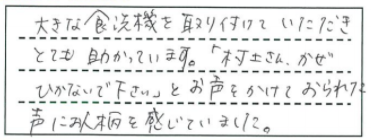 大きな食洗機を取り付けていただき
とても助かっています。「村土さん、かぜ
ひかないで下さい」とお声をかけておられた
声にお人柄を感じていました。